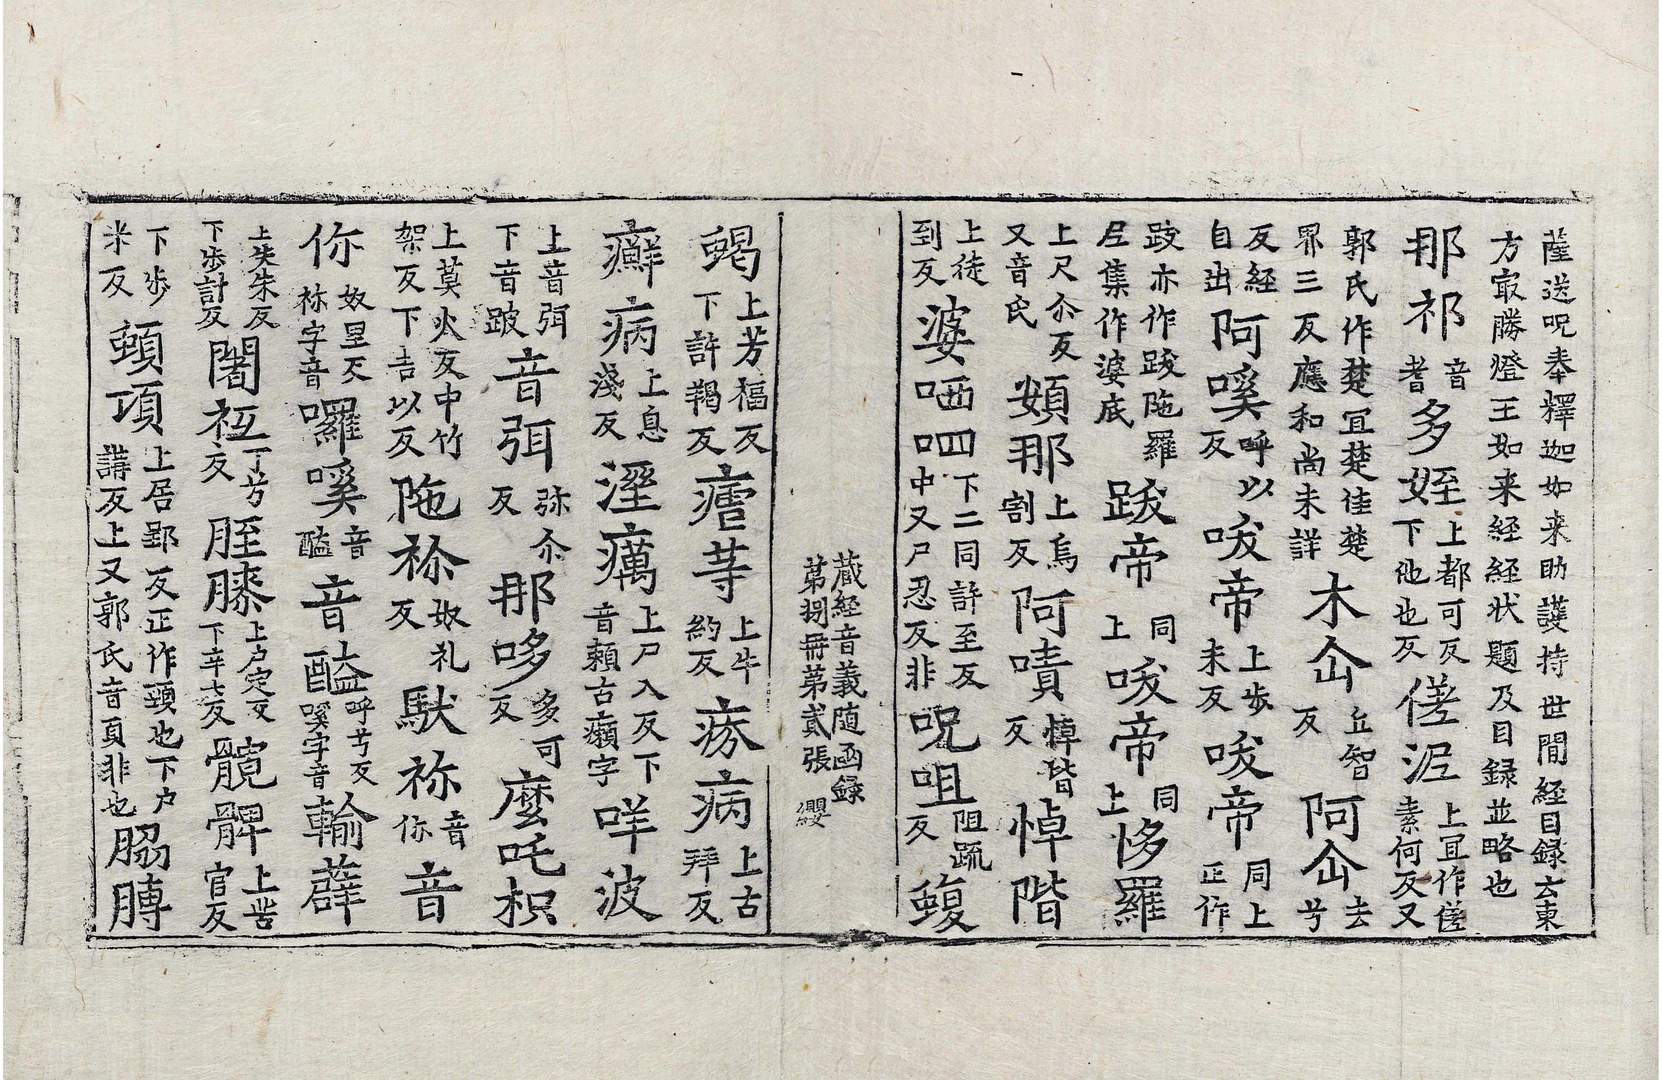 薩送呪奉釋迦如来助護持世間経目録云東
方㝡勝燈王如来経経状題及目録並略也
那祁音耆多姪上都可反下他也反傞泥上宜作傞素何反又
郭氏作楚宜楚佳楚界三反應和尚未詳木㐰丘智反阿㐰去兮
反経自出阿嗘呼以反㕹帝上歩未反㕹帝同上正作
跤亦作跋陁羅𡰱集作婆底跋帝同上㕹帝同上恀羅
上尺尒反又音氏䫌那上烏割反阿嘖悼階反悼階
上徒到反婆呬呬下二同許至反中又尸忍反非呪咀阻䟽反蝮
蔵経音義随函録
第捌冊第貳張 纓
蝎上芳福反下許羯反瘧䓁上牛約反疥病上古拜反
癬病上息淺反溼癘上尸入反下音賴古癩字咩波
上音弭下音跛音弭弥尒反那哆多可反麼吒枳
上莫火反中竹架反下吉以反陁祢奴礼反䭾祢音你音
你奴里反祢字音囉嗘音醯音醯呼兮反嗘字音輸薜
上失朱反下歩計反闍祗丁兮反脛膝上户定反下辛七反髖髀上苦官反
下歩米反䫌項上居郢反正作頸也下户講反上又郭氏音頁非也脇膊